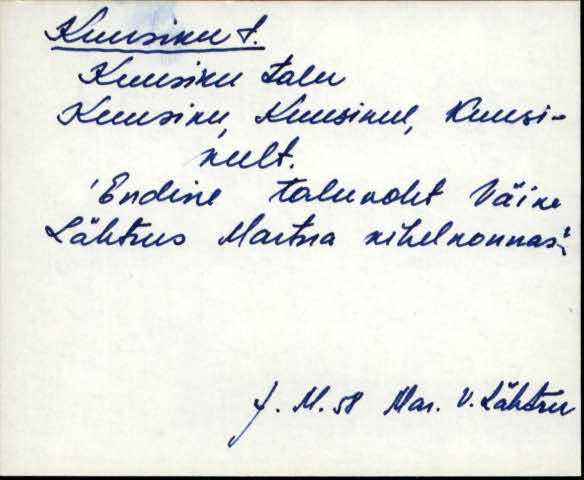 Kuusiku t.
Kuusiku talu
Kuusiku, Kuusikul, Kuusi-
kult.
'Endine talukoht Väike
Lähtrus Martna kihelkonnas'.
J. M. 58 Mar. V. Lähtru